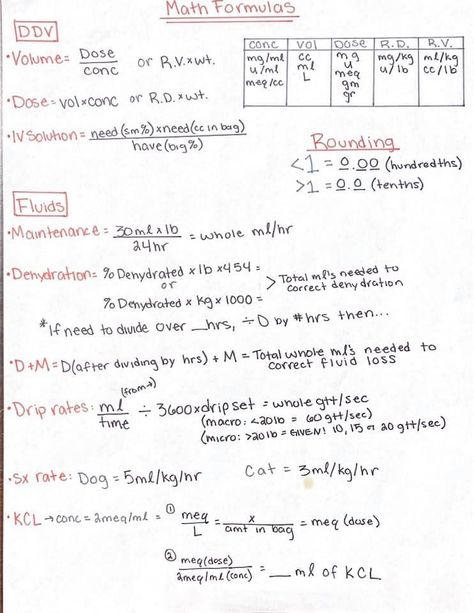 Math Formulas
DDV
•Volume = Dose/conc or R.V. × wt.
•Dose = vol × conc or R.D. × wt.
•IV Solution = need (sm%) × need (cc in bag)/have (big%)
conc vol Dose R.D. R.V.
mg/ml cc mg mg/kg ml/kg
u/ml ml u u/lb cc/lb
meq/cc L meq
gm
gr
Rounding
<1 = 0.00 (hundredths)
>1 = 0.0 (tenths)
Fluids
•Maintenance = 30ml × lb/24hr = whole ml/hr
•Dehydration = % Dehydrated × lb × 454 =
or > Total ml's needed to correct dehydration
% Dehydrated × kg × 1000 =
*If need to divide over __hrs, ÷ D by # hrs then...
•D+M = D(after dividing by hrs) + M = Total whole ml's needed to
correct fluid loss
(from→)
•Drip rates: ml/time ÷ 3600 × drip set = whole gtt/sec
(macro: <20lb = 60 gtt/sec)
(micro: >20lb = GIVEN! 10, 15 or 20 gtt/sec)
•Sx rate: Dog = 5ml/kg/hr Cat = 3ml/kg/hr
•KCL → conc = 2meq/ml = ① meq/L = x/amt in bag = meq (dose)
② meq(dose)/2meq/ml (conc) = __ ml of KCL